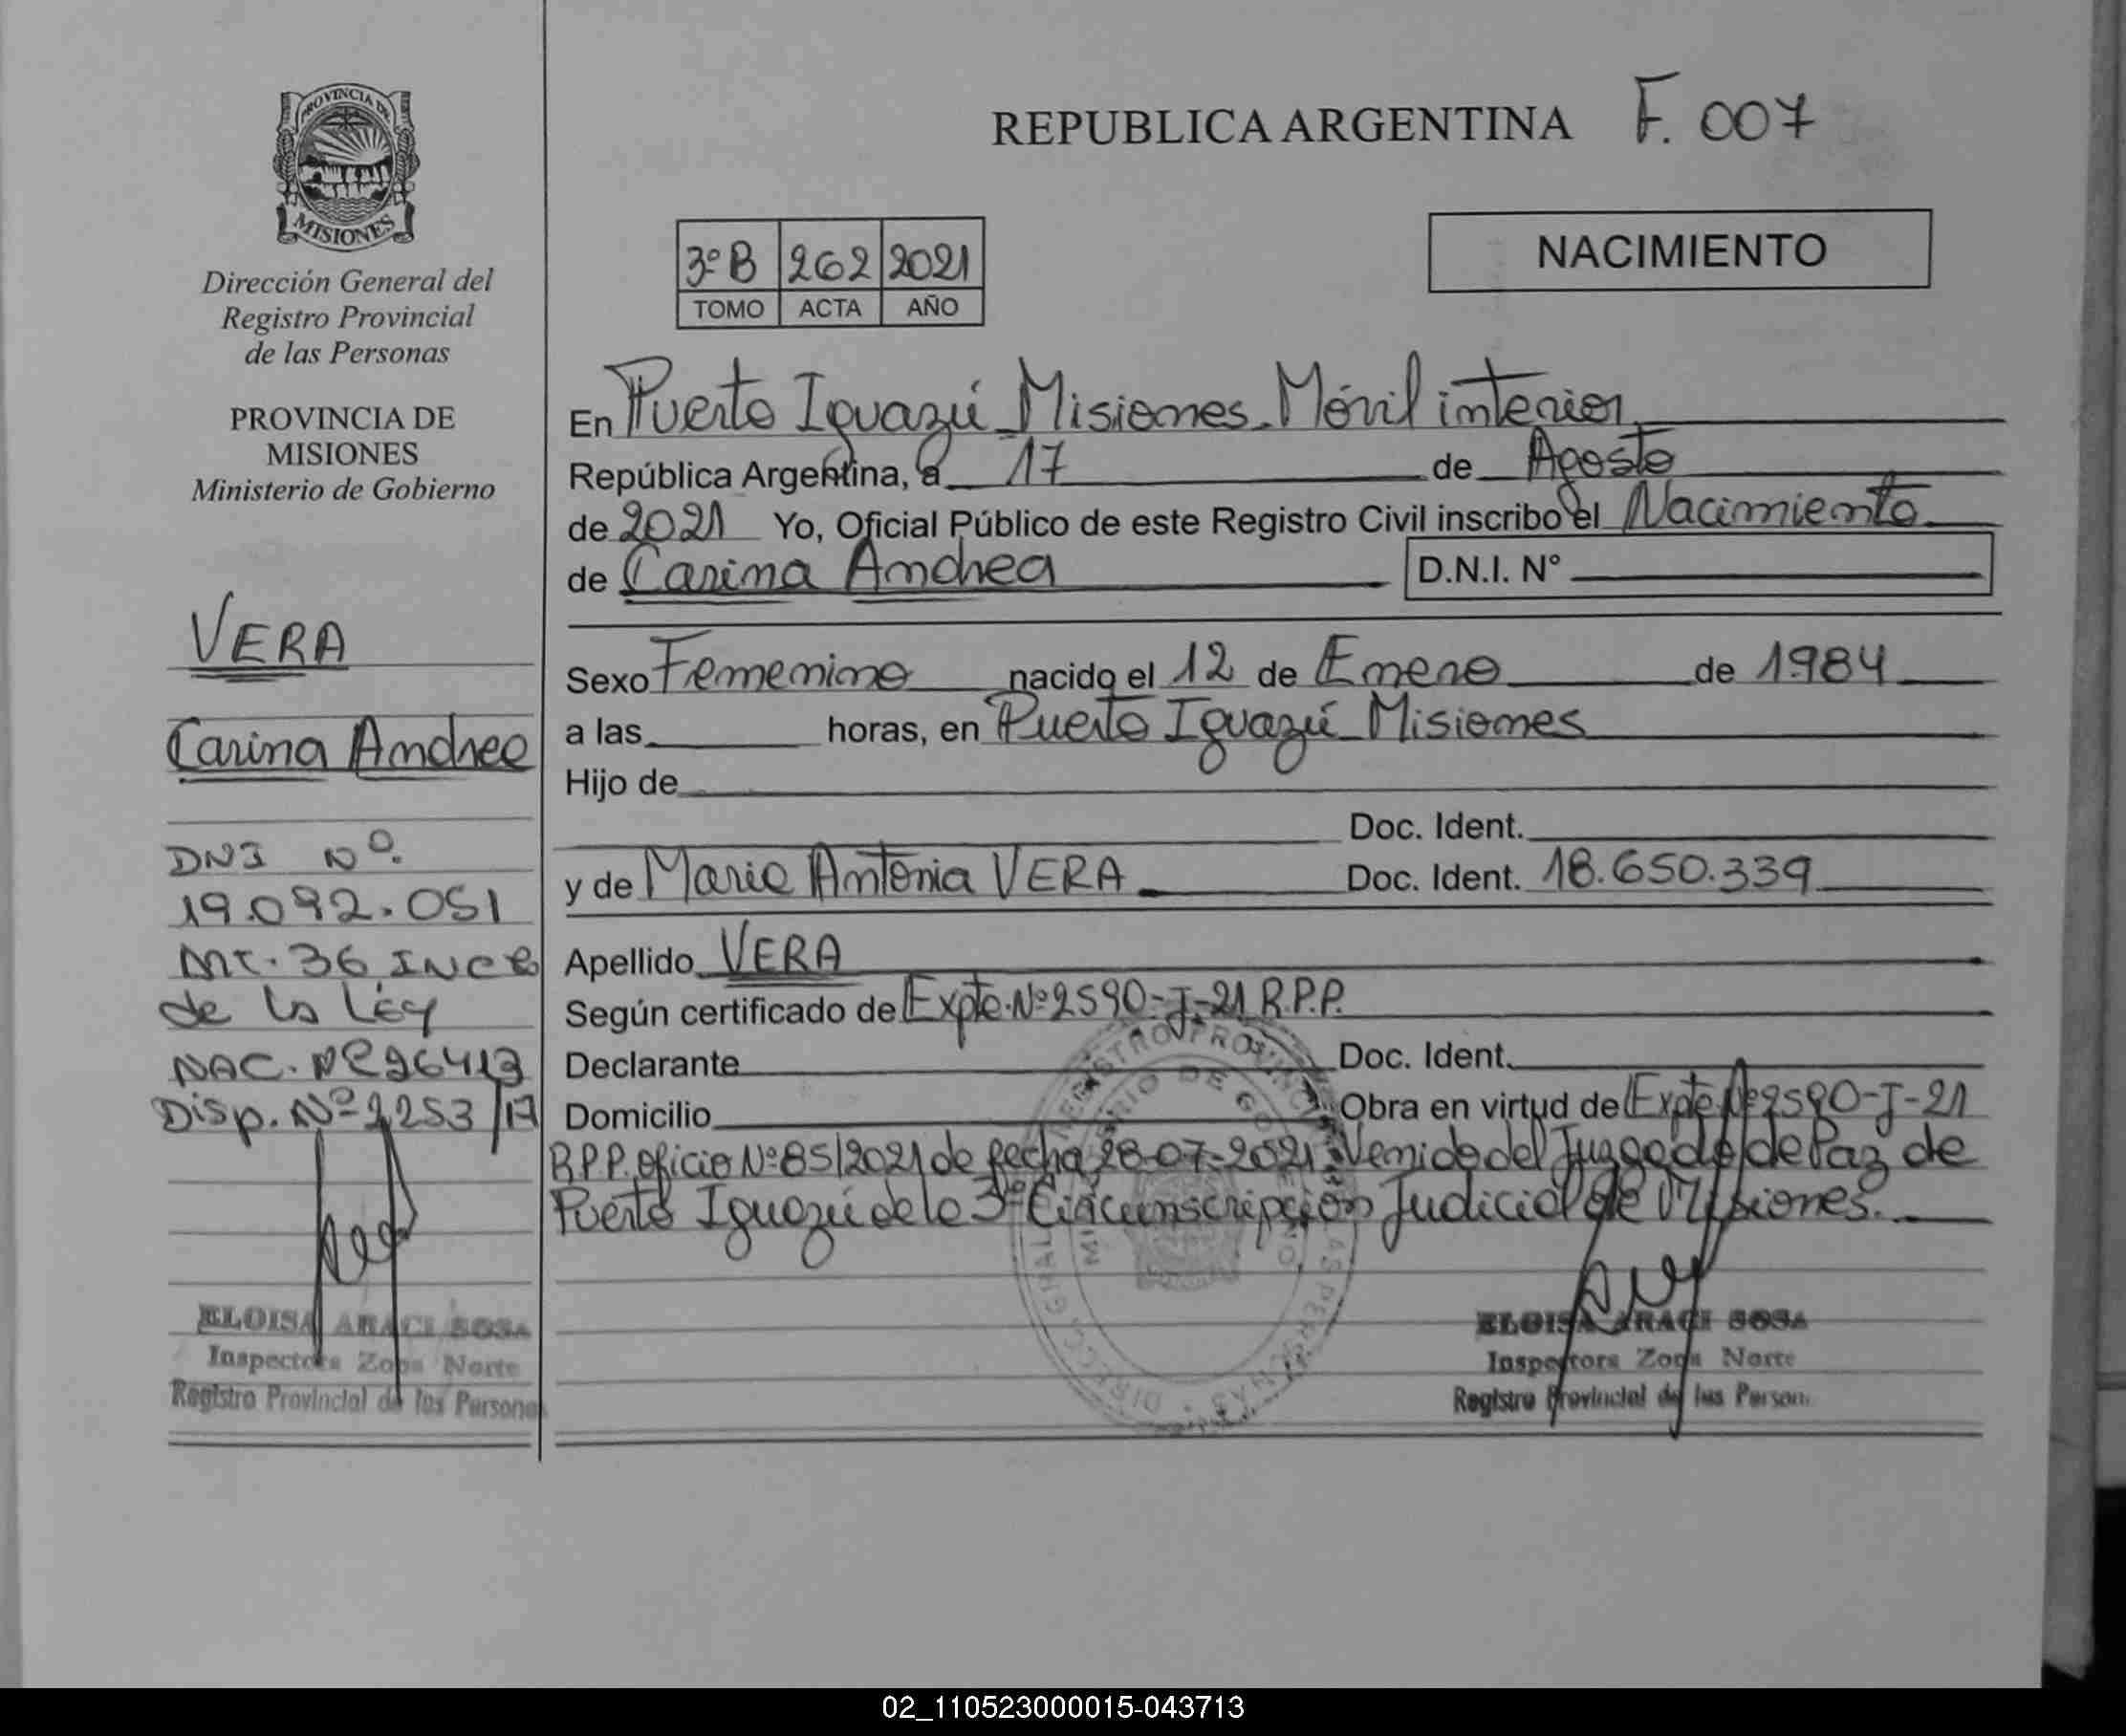 PROVINCIA DE
MISIONES
Dirección General del
Registro Provincial
de las Personas
PROVINCIA DE
MISIONES
Ministerio de Gobierno
VERA
Carina Andrea
DNI Nº
19.092.051
Art. 36 INC B
de la Ley
NAC. Nº 26413
Disp. Nº 2253/17
ELOISA ARACI SOSA
Inspectora Zona Norte
Registro Provincial de las Personas
REPUBLICA ARGENTINA F. 007
3º B 262 2021
TOMO ACTA AÑO
NACIMIENTO
En Puerto Iguazú Misiones. Móvil interior
República Argentina, a 17 de Agosto
de 2021 Yo, Oficial Público de este Registro Civil inscribo el Nacimiento
de Carina Andrea D.N.I. Nº
Sexo Femenino nacido el 12 de Enero de 1984
a las horas, en Puerto Iguazú Misiones
Hijo de
Doc. Ident.
y de Maria Antonia VERA Doc. Ident. 18.650.339
Apellido VERA
Según certificado de Expte. Nº 2590-J-21 R.P.P.
Declarante Doc. Ident.
Domicilio Obra en virtud de Expte Nº 2590-J-21
R.P.P. oficio Nº 85/2021 de fecha 28-07-2021 Venido del Juzgado de Paz de
Puerto Iguazú de la 3º Circunscripción Judicial de Misiones.
ELOISA ARACI SOSA
Inspectora Zona Norte
Registro Provincial de las Person
02_110523000015-043713